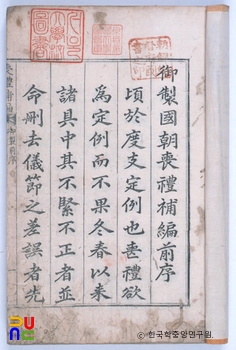 御製國朝喪禮補編前序
頃於度支定例也喪禮欲
爲定例而不果冬春以來
諸具中其不緊不正者並
命刪去儀節之差誤者先
ⓒ 한국학중앙연구원